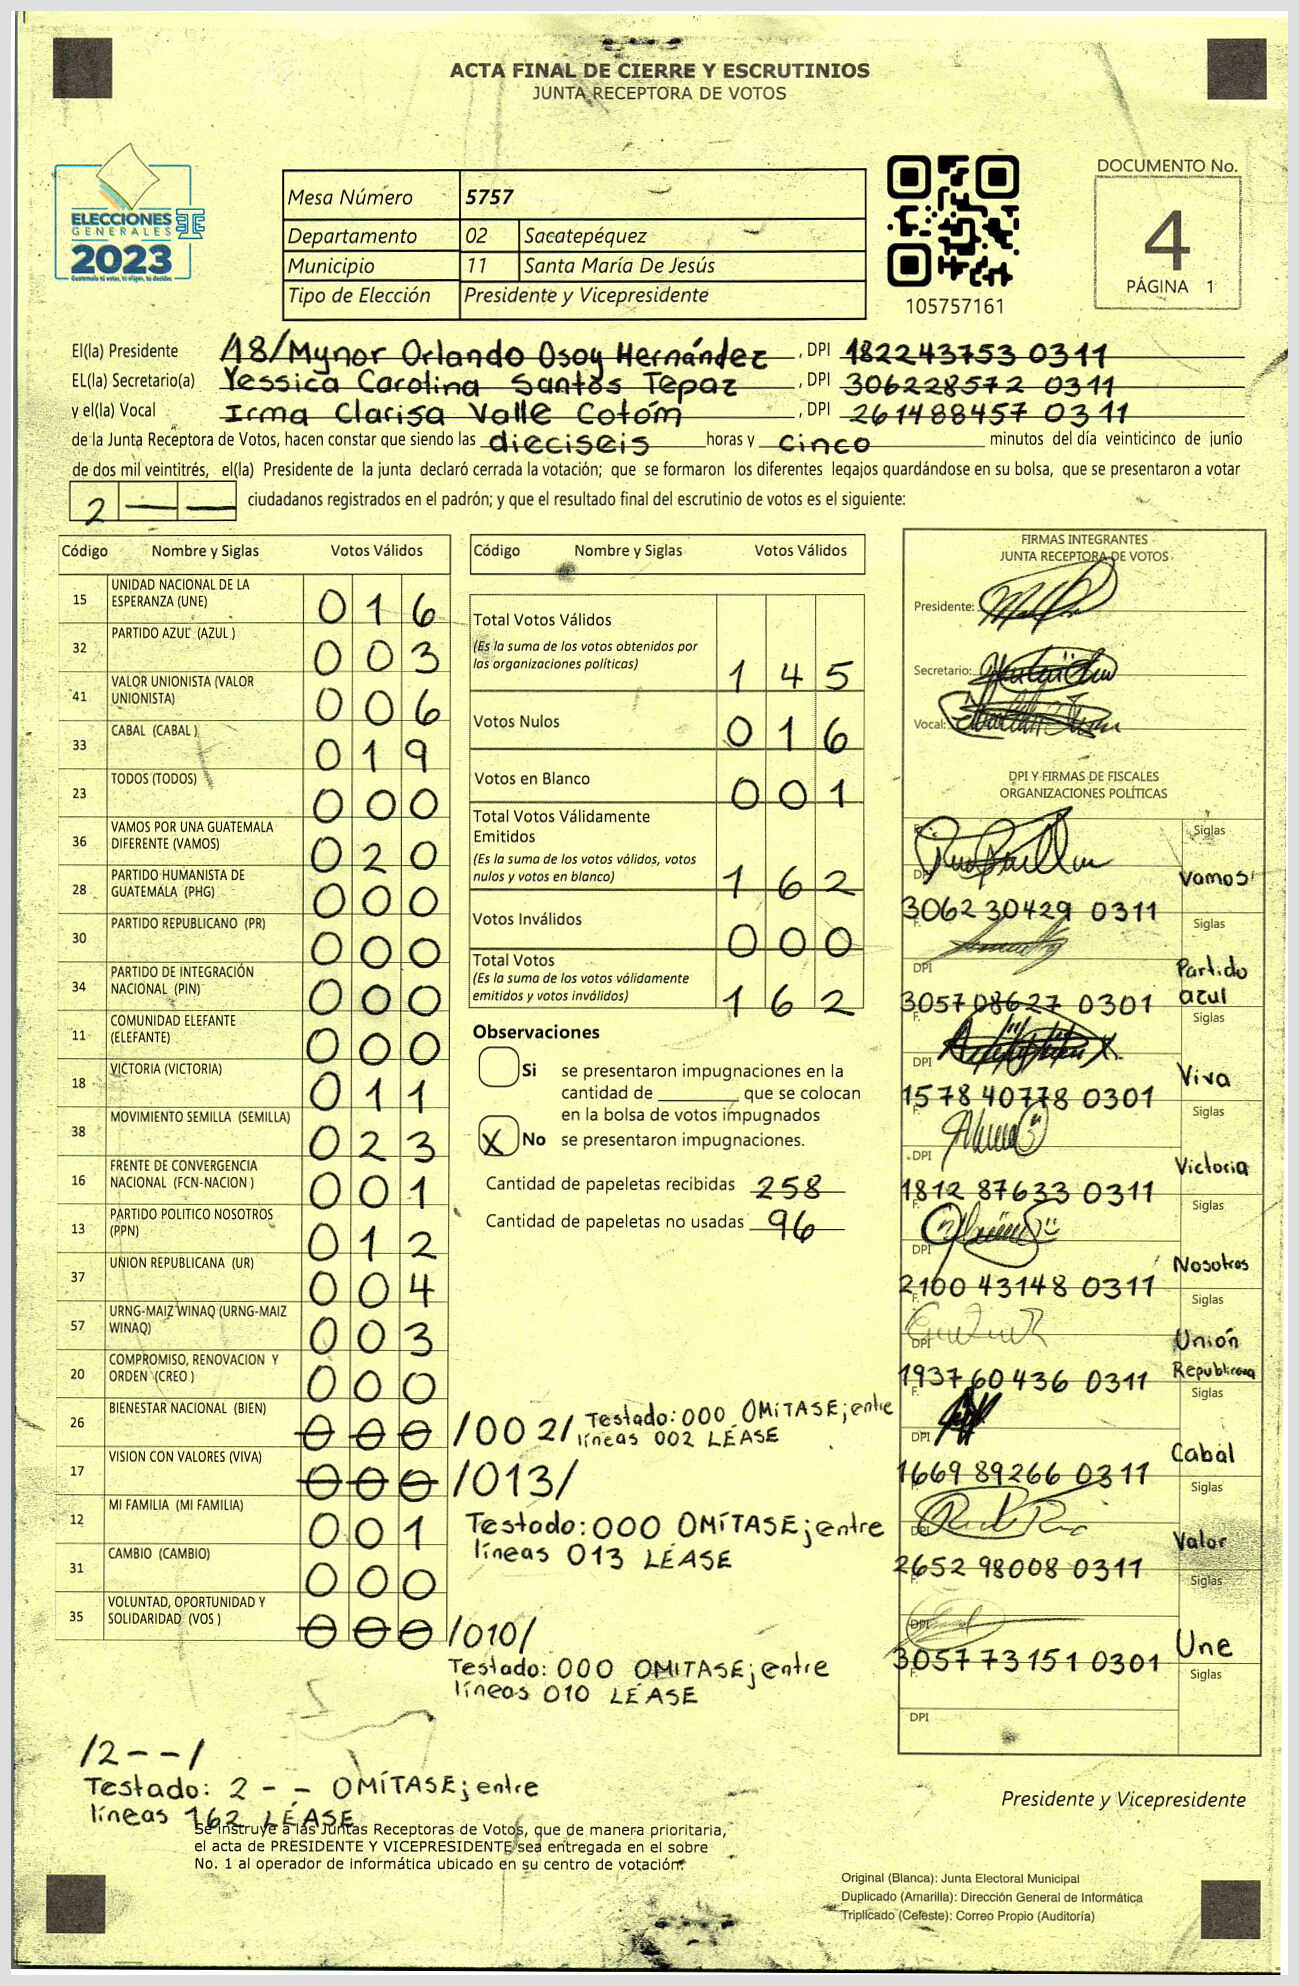 ACTA FINAL DE CIERRE Y ESCRUTINIOS
JUNTA RECEPTORA DE VOTOS
ELECCIONES
GENERALES
2023
Guatemala tú votas, tú eliges, tú decides
Mesa Número 5757
Departamento 02 Sacatepéquez
Municipio 11 Santa María De Jesús
Tipo de Elección Presidente y Vicepresidente
105757161
DOCUMENTO No.
4
PÁGINA 1
El(la) Presidente 18/Mynor Orlando Osoy Hernández , DPI 182243753 0311
EL(la) Secretario(a) Yessica Carolina Santos Tepaz , DPI 306228572 0311
y el(la) Vocal Irma Clarisa Valle Cotóm , DPI 261488457 0311
de la Junta Receptora de Votos, hacen constar que siendo las dieciseis horas y cinco minutos del día veinticinco de junio
de dos mil veintitrés, el(la) Presidente de la junta declaró cerrada la votación; que se formaron los diferentes legajos quardándose en su bolsa, que se presentaron a votar
2 — — ciudadanos registrados en el padrón; y que el resultado final del escrutinio de votos es el siguiente:
Código Nombre y Siglas Votos Válidos
15 UNIDAD NACIONAL DE LA ESPERANZA (UNE) 016
32 PARTIDO AZUL (AZUL ) 003
41 VALOR UNIONISTA (VALOR UNIONISTA) 006
33 CABAL (CABAL ) 019
23 TODOS (TODOS) 000
36 VAMOS POR UNA GUATEMALA DIFERENTE (VAMOS) 020
28 PARTIDO HUMANISTA DE GUATEMALA (PHG) 000
30 PARTIDO REPUBLICANO (PR) 000
34 PARTIDO DE INTEGRACIÓN NACIONAL (PIN) 000
11 COMUNIDAD ELEFANTE (ELEFANTE) 000
18 VICTORIA (VICTORIA) 011
38 MOVIMIENTO SEMILLA (SEMILLA) 023
16 FRENTE DE CONVERGENCIA NACIONAL (FCN-NACION ) 001
13 PARTIDO POLITICO NOSOTROS (PPN) 012
37 UNION REPUBLICANA (UR) 004
57 URNG-MAIZ WINAQ (URNG-MAIZ WINAQ) 003
20 COMPROMISO, RENOVACION Y ORDEN (CREO ) 000
26 BIENESTAR NACIONAL (BIEN) 000 /002/ Testado: 000 OMITASE; entre
líneas 002 LÉASE
17 VISION CON VALORES (VIVA) 000 /013/
Testado: 000 OMÍTASE; entre
líneas 013 LÉASE
12 MI FAMILIA (MI FAMILIA) 001
31 CAMBIO (CAMBIO) 000
35 VOLUNTAD, OPORTUNIDAD Y SOLIDARIDAD (VOS ) 000 /010/
Testado: 000 OMITASE; entre
líneas 010 LÉASE
Código Nombre y Siglas Votos Válidos
Total Votos Válidos
(Es la suma de los votos obtenidos por
las organizaciones políticas) 145
Votos Nulos 016
Votos en Blanco 001
Total Votos Válidamente
Emitidos
(Es la suma de los votos válidos, votos
nulos y votos en blanco) 162
Votos Inválidos 000
Total Votos
(Es la suma de los votos válidamente
emitidos y votos inválidos) 162
Observaciones
Si se presentaron impugnaciones en la
cantidad de ________ que se colocan
en la bolsa de votos impugnados
X No se presentaron impugnaciones.
Cantidad de papeletas recibidas 258
Cantidad de papeletas no usadas 96
FIRMAS INTEGRANTES
JUNTA RECEPTORA DE VOTOS
Presidente:
Secretario:
Vocal:
DPI Y FIRMAS DE FISCALES
ORGANIZACIONES POLÍTICAS
F. Siglas
DPI 3062 30429 0311 Vamos
F. Siglas
DPI 3057 08627 0301 Partido azul
F. Siglas
DPI 1578 40778 0301 Viva
F. Siglas
DPI 1812 87633 0311 Victoria
F. Siglas
DPI 2100 43148 0311 Nosotros
F. Siglas
DPI 1937 60436 0311 Unión Republicana
F. Siglas
DPI 1669 89266 0311 Cabal
F. Siglas
DPI 2652 98008 0311 Valor
F. Siglas
DPI 3057 73151 0301 Une
F. Siglas
DPI
/2 - - /
Testado: 2 - - OMÍTASE; entre
líneas 162 LÉASE
Presidente y Vicepresidente
Se instruye a las Juntas Receptoras de Votos, que de manera prioritaria,
el acta de PRESIDENTE Y VICEPRESIDENTE sea entregada en el sobre
No. 1 al operador de informática ubicado en su centro de votación.
Original (Blanca): Junta Electoral Municipal
Duplicado (Amarilla): Dirección General de Informática
Triplicado (Celeste): Correo Propio (Auditoría)